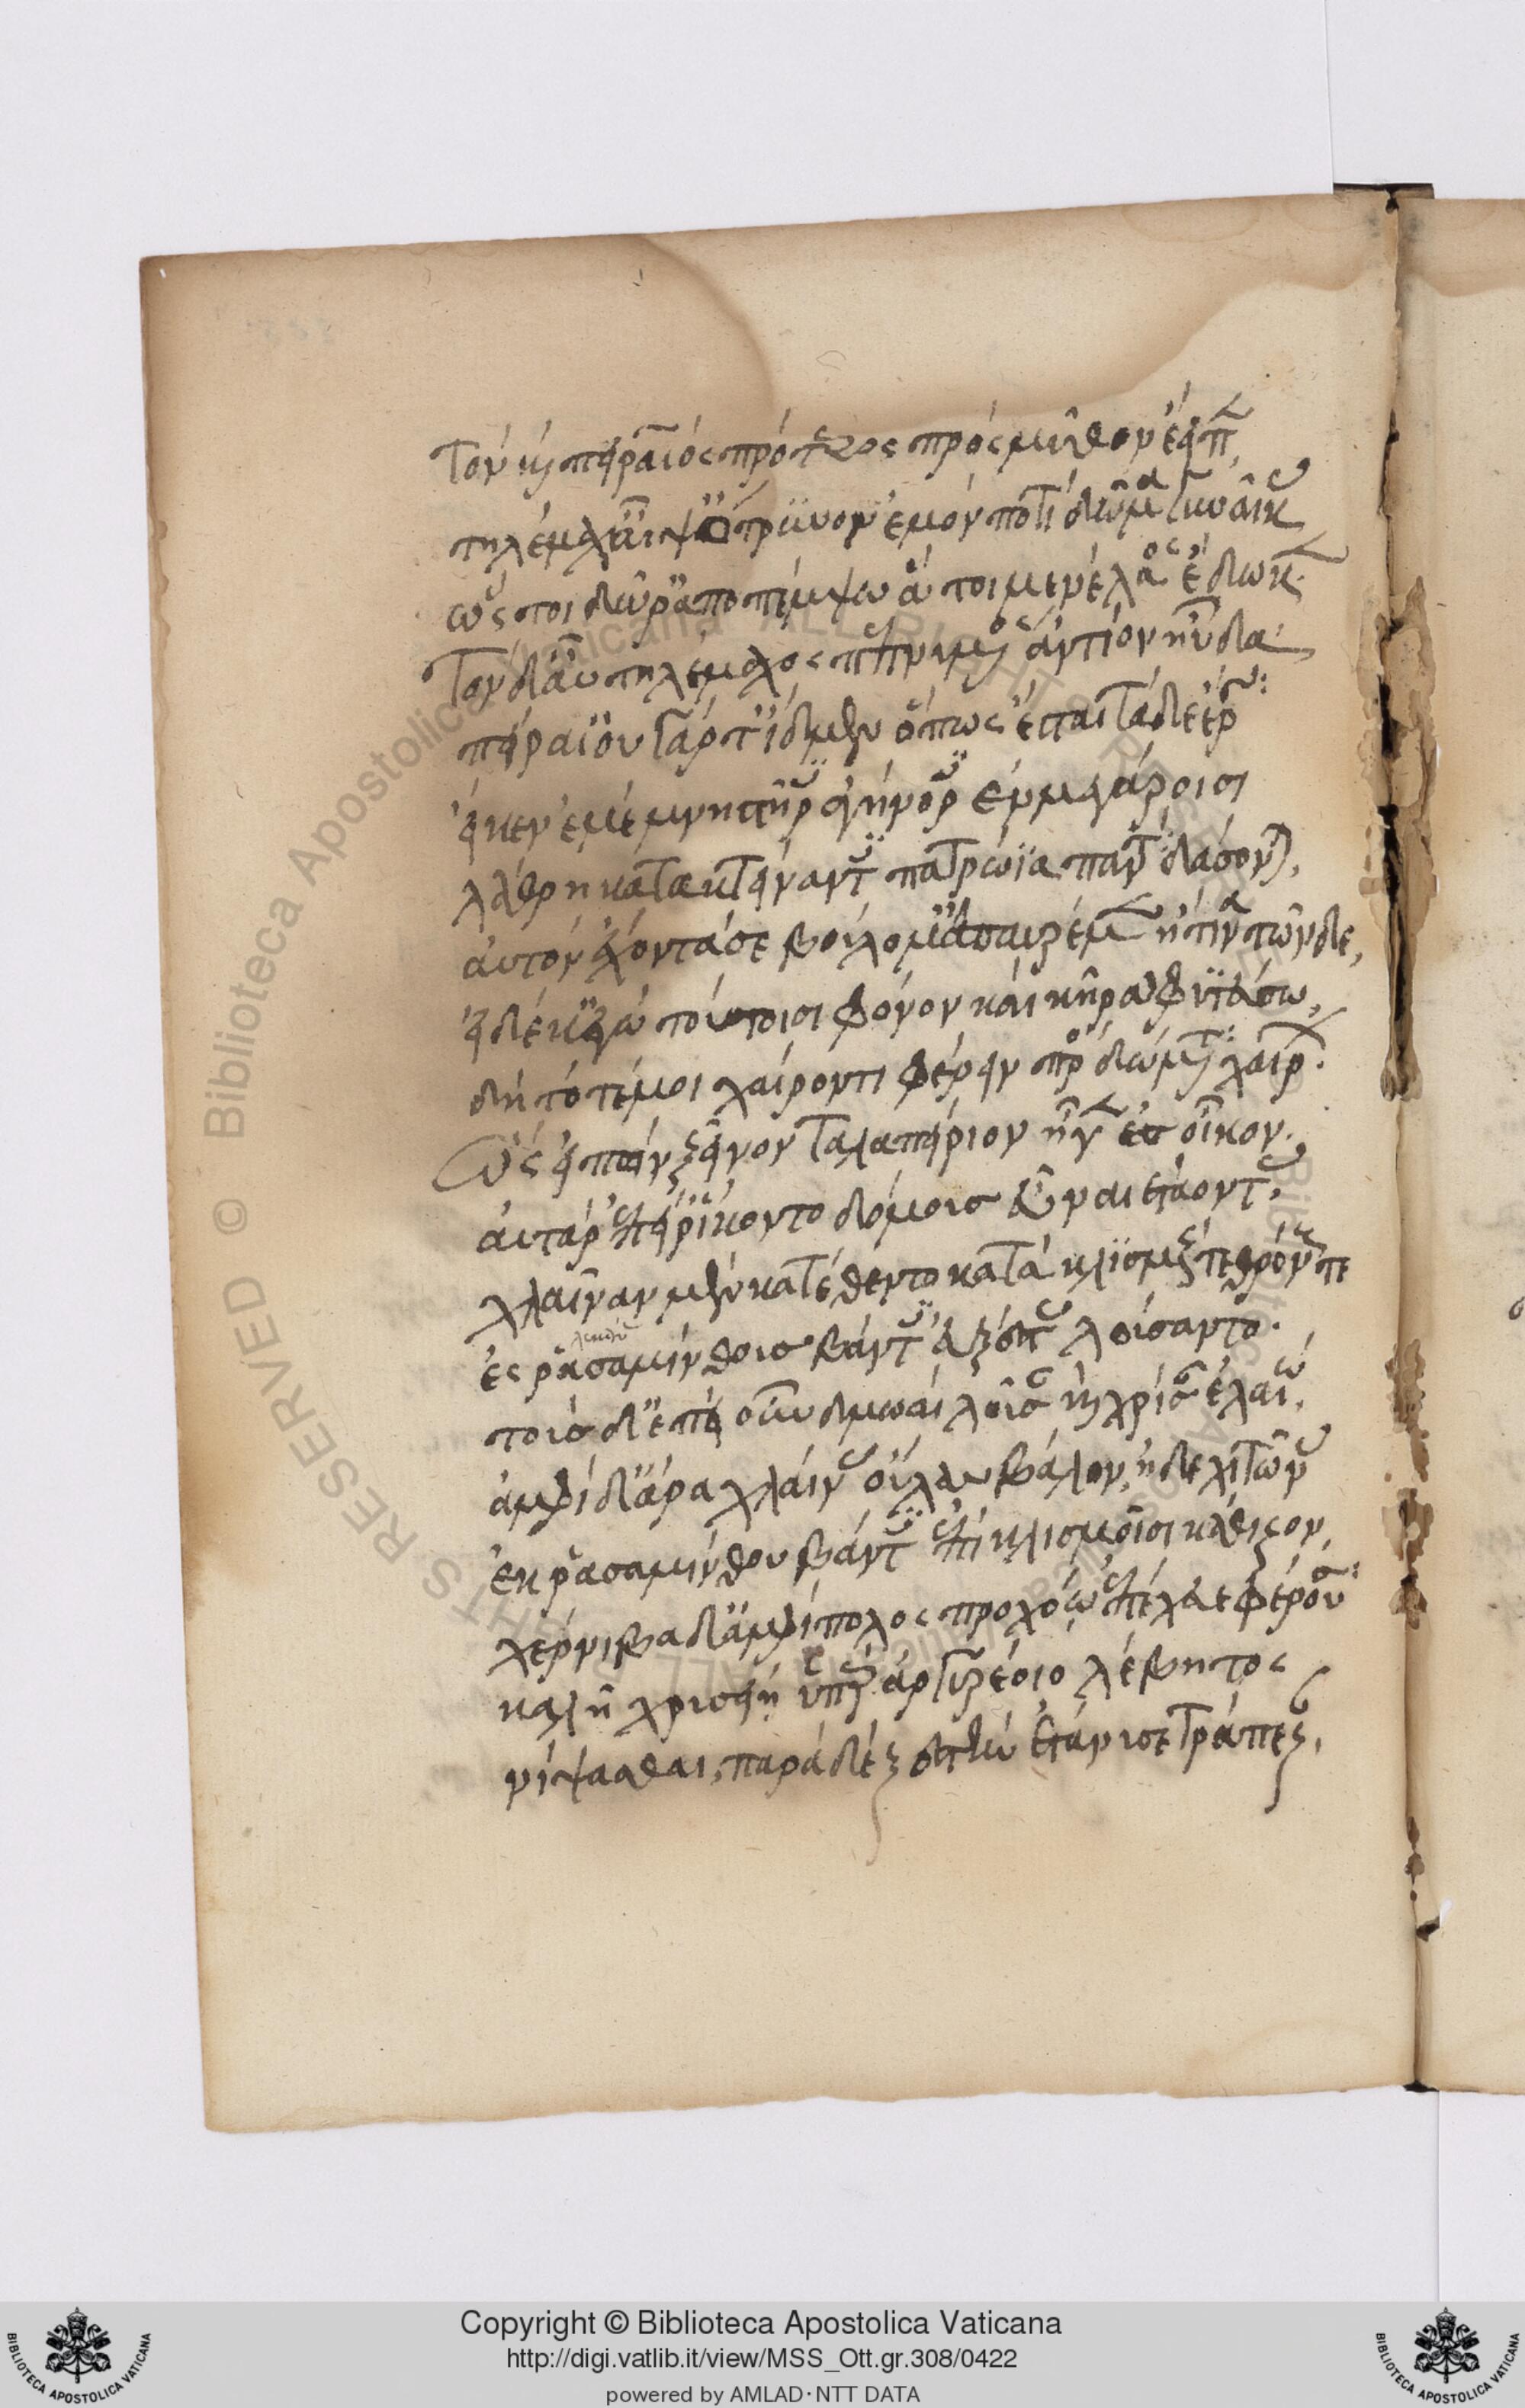 τὸν καὶ πείραιος πρότερος πρὸς μῦθον ἔειπε,
τηλέμαχ' αἶψ' ὄτρυνον ἐμὸν ποτὶ δῶμα γυναῖκας
ὥς τοι δῶρ' ἀποπέμψω ἅ τοι μενέλαος ἔδωκε.
τὸν δ' αὖ τηλέμαχος πεπνυμένος ἀντίον ηὔδα.
πείραι' οὐ γάρ τ' ἴδμεν ὅπως ἔσται τάδε ἔργα:
εἴ κεν ἐμὲ μνηστῆρες ἀγήνορες ἐν μεγάροισι
λάθρη κατακτείναντες πατρώϊα πάντα δάσονται,
αὐτὸν ἔχοντά σε βούλομ' ἐπαυρέμεν ἤ τινα τῶνδε,
εἰ δέ κ' ἐγὼ τούτοισι φόνον καὶ κῆρα φυτεύσω,
δὴ τότε μοι χαίροντι φέρειν πρὸς δώματα χαίρων.
ὣς εἰπὼν ξεῖνον ταλαπείριον ἦγεν ἐς οἶκον.
αὐτὰρ ἐπεί ῥ' ἵκοντο δόμους εὖ ναιετάοντας,
χλαίναν μὲν κατέθεντο κατὰ κλισμούς τε θρόνους τε
ἐς ῥ' ἀσαμίνθους βάντες ἐϋξέστας λούσαντο.
τοὺς δ' ἐπεὶ οὖν δμωαὶ λοῦσαν καὶ χρῖσαν ἐλαίω,
ἀμφὶ δ' ἄρα χλαίνας οὔλας βάλον, ἠδὲ χιτῶνας
ἐκ ῥ' ἀσαμίνθου βάντες ἐπὶ κλισμοῖσι κάθιζον,
χέρνιβα δ' ἀμφίπολος προχόω ἐπέχευε φέρουσα:
καλῆ χρυσείη ὑπὲρ ἀργυρέοιο λέβητος
νίψασθαι, παρὰ δὲ ξεστὴν ἐτάνυσε τράπεζαν,
Copyright © Biblioteca Apostolica Vaticana
http://digi.vatlib.it/view/MSS_Ott.gr.308/0422
powered by AMLAD·NTT DATA